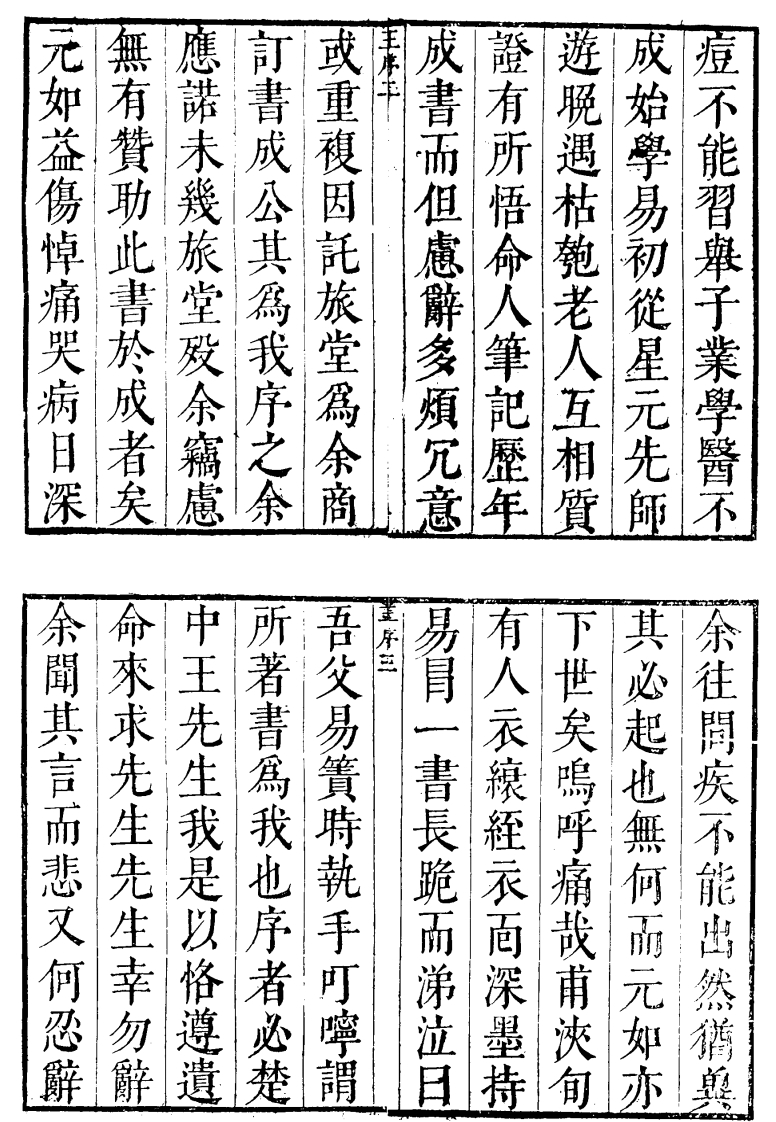 痘不能習舉子業學醫不
成始學易初從星元先師
遊晚遇枯匏老人互相質
證有所悟命人筆記歷年
成書而但慮辭多煩冗意
王序二
或重複因託旅堂為余商
訂書成公其為我序之余
應諾未幾旅堂歿余竊慮
無有贊助此書於成者矣
元如益傷悼痛哭病日深
余往問疾不能出然猶兾
其必起也無何而元如亦
下世矣嗚呼痛哉甫浹旬
有人衣縗絰衣面深墨持
易冒一書長跪而涕泣曰
王序三
吾父易簀時執手叮嚀謂
所著書為我也序者必楚
中王先生我是以恪遵遺
命來求先生先生幸勿辭
余聞其言而悲又何忍辭